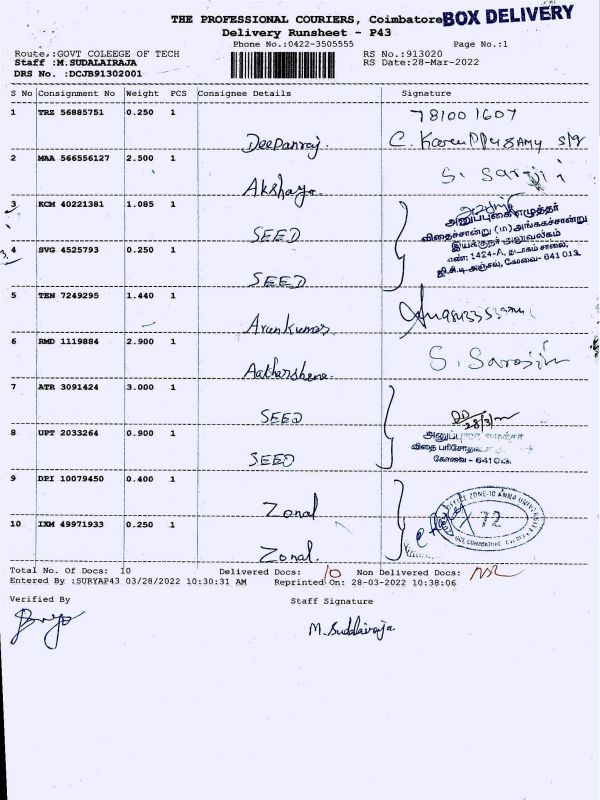 THE PROFESSIONAL COURIERS, Coimbatore BOX DELIVERY
Delivery Runsheet - P43
Phone No.:0422-3505555 Page No.:1
Route,:GOVT COLEEGE OF TECH RS No.:913020
Staff :M.SUDALAIRAJA RS Date:28-Mar-2022
DRS No. :DCJB91302001
S No Consignment No Weight PCS Consignee Details Signature
1 TRZ 56885751 0.250 1 781001607
Deepanraj. C.
2 MAA 566556127 2.500 1
Akshaya. S.
3 KCM 40221381 1.085 1
SEED அனுப்புகை எழுத்தர்
விதைச்சான்று (ம) அங்ககச்சான்று
4 SVG 4525793 0.250 1 இயக்குநர் அலுவலகம்
எண்: 1424-A, தடாகம் சாலை,
SEED ஜி.சி.டி அஞ்சல், கோவை- 641 013.
5 TEN 7249295 1.440 1
Arunkumar
6 RMD 1119884 2.900 1
S.
7 ATR 3091424 3.000 1
SEED 28/3/
8 UPT 2033264 0.900 1
விதை
SEED கோவை - 641 013.
9 DPI 10079450 0.400 1
Zonal ZONE-10 ANNA UNIVERSITY
72
10 IXM 49971933 0.250 1 COIMBATORE
Zonal.
Total No. Of Docs: 10 Delivered Docs: 10 Non Delivered Docs: NIL
Entered By :SURYAP43 03/28/2022 10:30:31 AM Reprinted On: 28-03-2022 10:38:06
Verified By Staff Signature
M. Sudalairaja